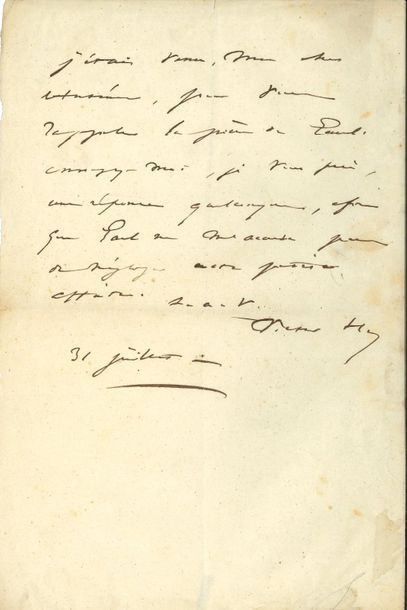 j'étais venu, mon cher
pour vous
rappeler la pièce de Paul.
envoyez-moi, je vous prie,
une réponse quelconque, afin
que Paul ne m'accuse pas
de négliger
affaire. t. a. v.
Victor Hugo
31 juillet